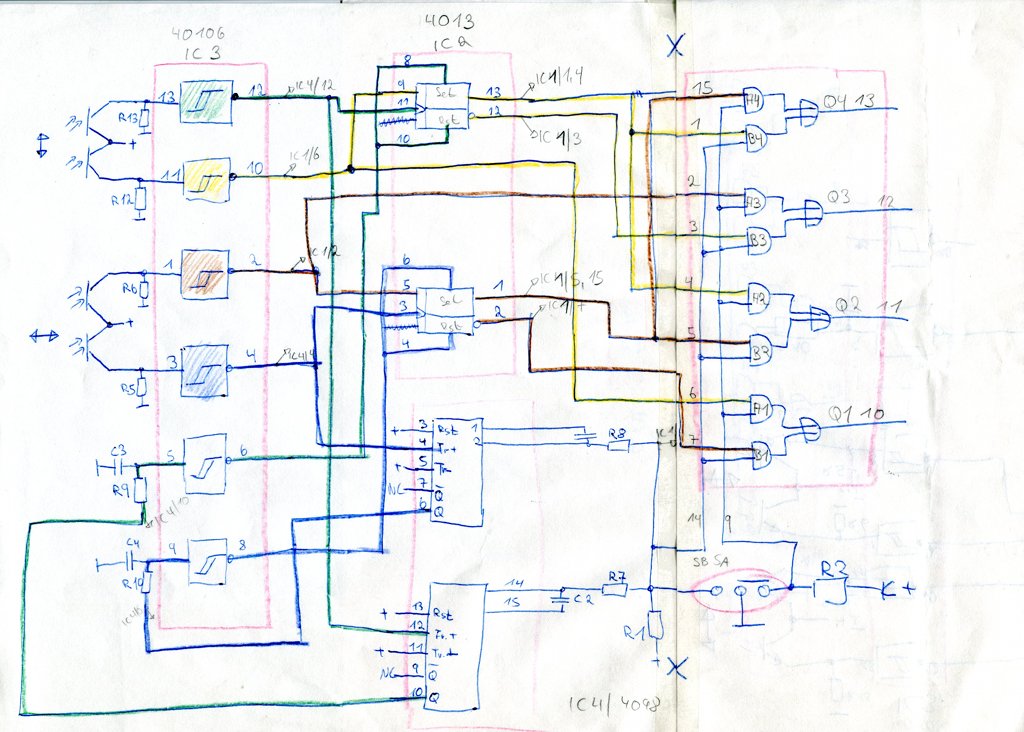 40106
IC 3
4013
IC 2
X
13
12
IC4/12
R13
+
11
10
IC1/6
R12
8
9
11
10
Set
Rst
13
12
IC1/1,4
IC1/3
1
2
IC1/2
R6
+
3
4
IC4/4
R5
6
5
3
4
Set
Rst
1
2
IC1/5,15
IC1/7
C3
R9
5
6
IC4/10
C4
R10
9
8
+
3
Rst
1
4
Tr+
2
+
5
Tr-
NC
7
Q
6
Q
R8
IC1
+
13
Rst
14
12
Tr+
15
+
11
NC
9
Q
10
Q
C2
R7
R1
+
X
IC4/4098
15
A4
Q4 13
1
B4
2
A3
Q3 12
3
B3
4
A2
Q2 11
5
B2
6
A1
Q1 10
7
B1
14
9
SBSA
R2
+